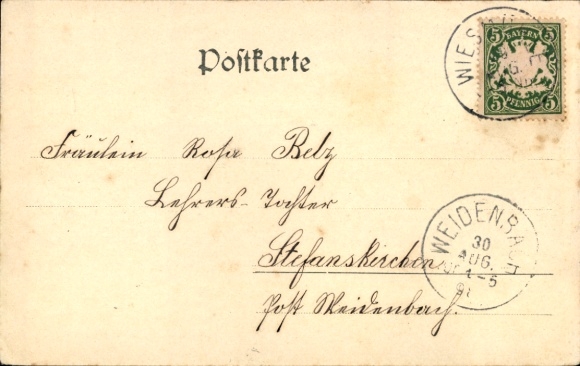 Postkarte
BAYERN
5 5
5 PFENNIG 5
WIES
Fräulein Rosa Belz
Lehrers-Tochter
Stefanskirchen
Post Weidenbach.
WEIDENBACH
30
AUG.
4-5